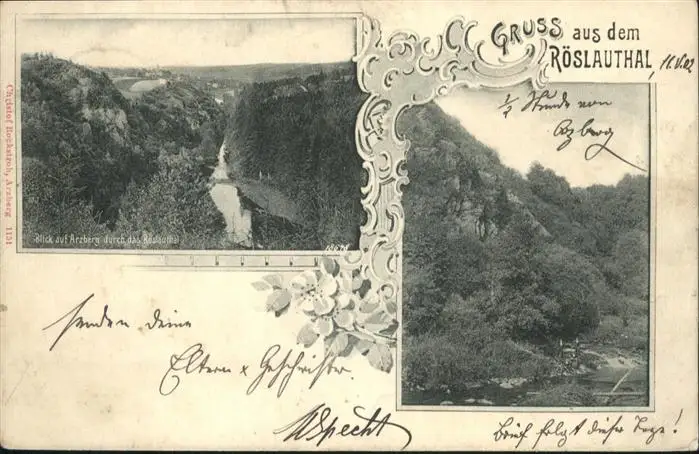 GRUSS aus dem
RÖSLAUTHAL
, 11.V.02
½ Stunde von
Arzberg
Christof Rockstroh, Arzberg 1131
Blick auf Arzberg durch das Röslauthal
senden deine
Eltern & Geschwister
Specht
Brief folgt dieser Tage!